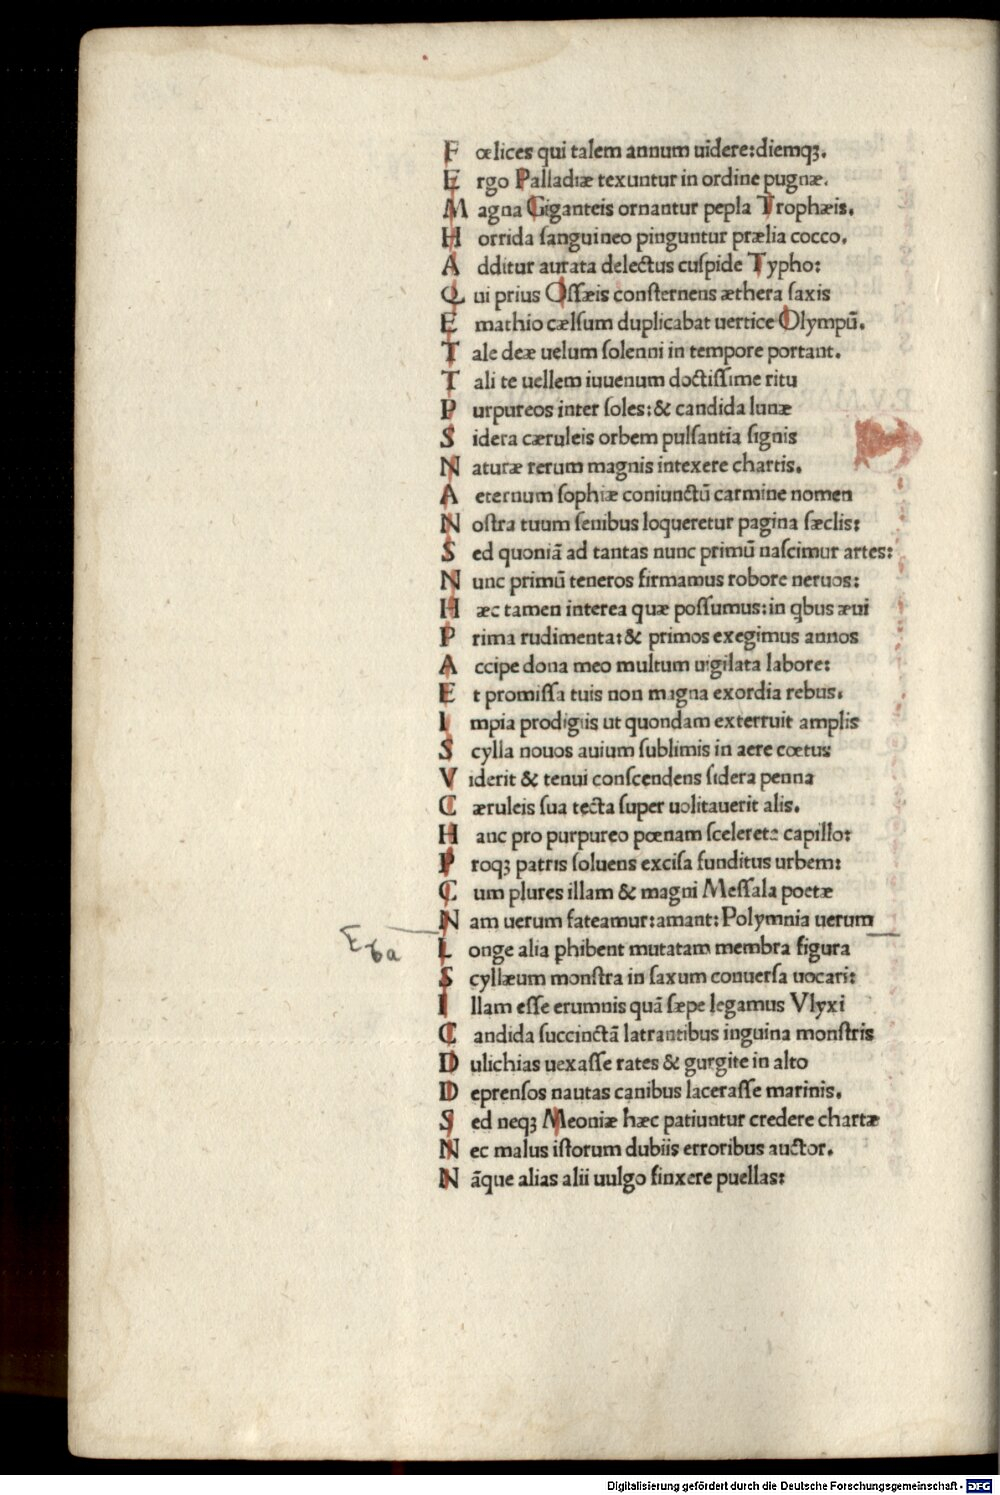 Fœlices qui talem annum uidere:diemqȝ.
Ergo Palladiæ texuntur in ordine pugnæ.
Magna Giganteis ornantur pepla Trophæis.
Horrida ſanguineo pinguntur prælia cocco.
Additur aurata delectus cuſpide Typho:
Qui prius Oſſæis conſternens æthera ſaxis
Emathio cælſum duplicabat uertice Olympū.
Tale deæ uelum ſolenni in tempore portant.
Tali te uellem iuuenum doctiſſime ritu
Purpureos inter ſoles:& candida lunæ
Sidera cæruleis orbem pulſantia ſignis
Naturæ rerum magnis intexere chartis.
Aeternum ſophiæ coniunctū carmine nomen
Noſtra tuum ſenibus loqueretur pagina ſæclis:
Sed quoniā ad tantas nunc primū naſcimur artes:
Nunc primū teneros firmamus robore neruos:
Hæc tamen interea quæ poſſumus:in qbus æui
Prima rudimenta:& primos exegimus annos
Accipe dona meo multum uigilata labore:
Et promiſſa tuis non magna exordia rebus.
Impia prodigiis ut quondam exterruit amplis
Scylla nouos auium ſublimis in aere cœtus
Viderit & tenui conſcendens ſidera penna
Cæruleis ſua tecta ſuper uolitauerit alis.
Hanc pro purpureo pœnam ſcelerete capillo:
Proqȝ patris ſoluens exciſa funditus urbem:
Cum plures illam & magni Meſſala poetæ
Nam uerum fateamur:amant:Polymnia uerum
Longe alia phibent mutatam membra figura
Scyllæum monſtra in ſaxum conuerſa uocari:
Illam eſſe erumnis quā ſæpe legamus Vlyxi
Candida ſuccinctā latrantibus inguina monſtris
Dulichias uexaſſe rates & gurgite in alto
Deprenſos nautas canibus laceraſſe marinis.
Sed neqȝ Meoniæ hæc patiuntur credere chartæ
Nec malus iſtorum dubiis erroribus auctor.
Nāque alias alii uulgo finxere puellas:
Digitalisierung gefördert durch die Deutsche Forschungsgemeinschaft - DFG